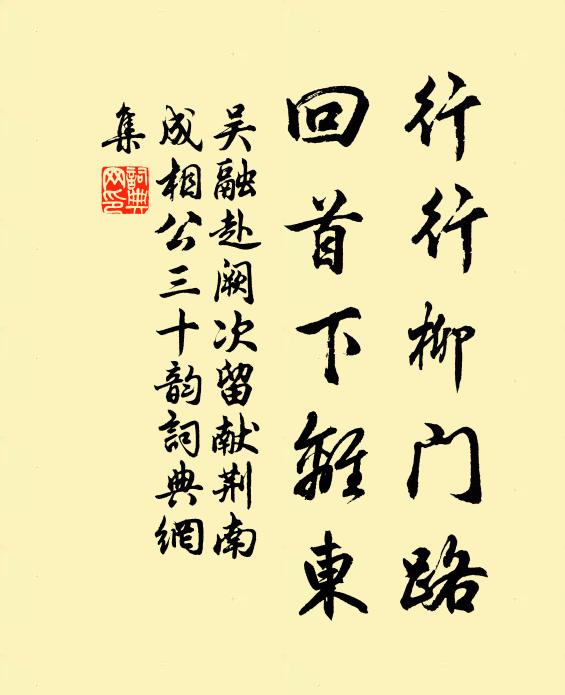 行行柳门路
回首下離東
吴融赴阙次留献荆南
成相公三十韵詞典網
集
詞典
网印